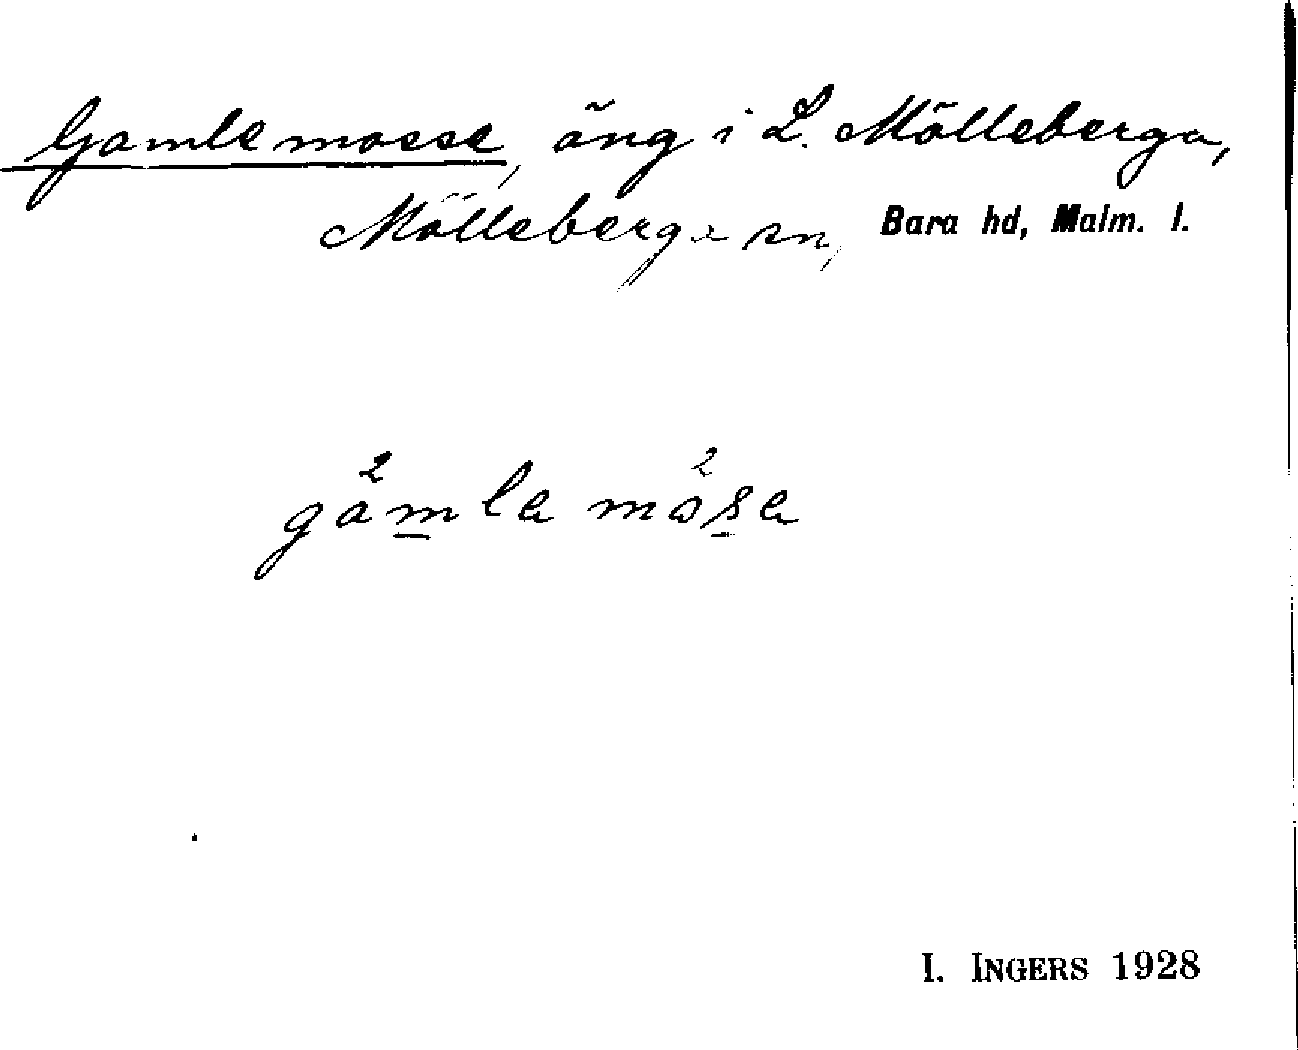 Gamlemosse, äng i L. Mölleberga,
Mölleberga sn, Bara hd, Malm. l.
gamla mosa
I. INGERS 1928